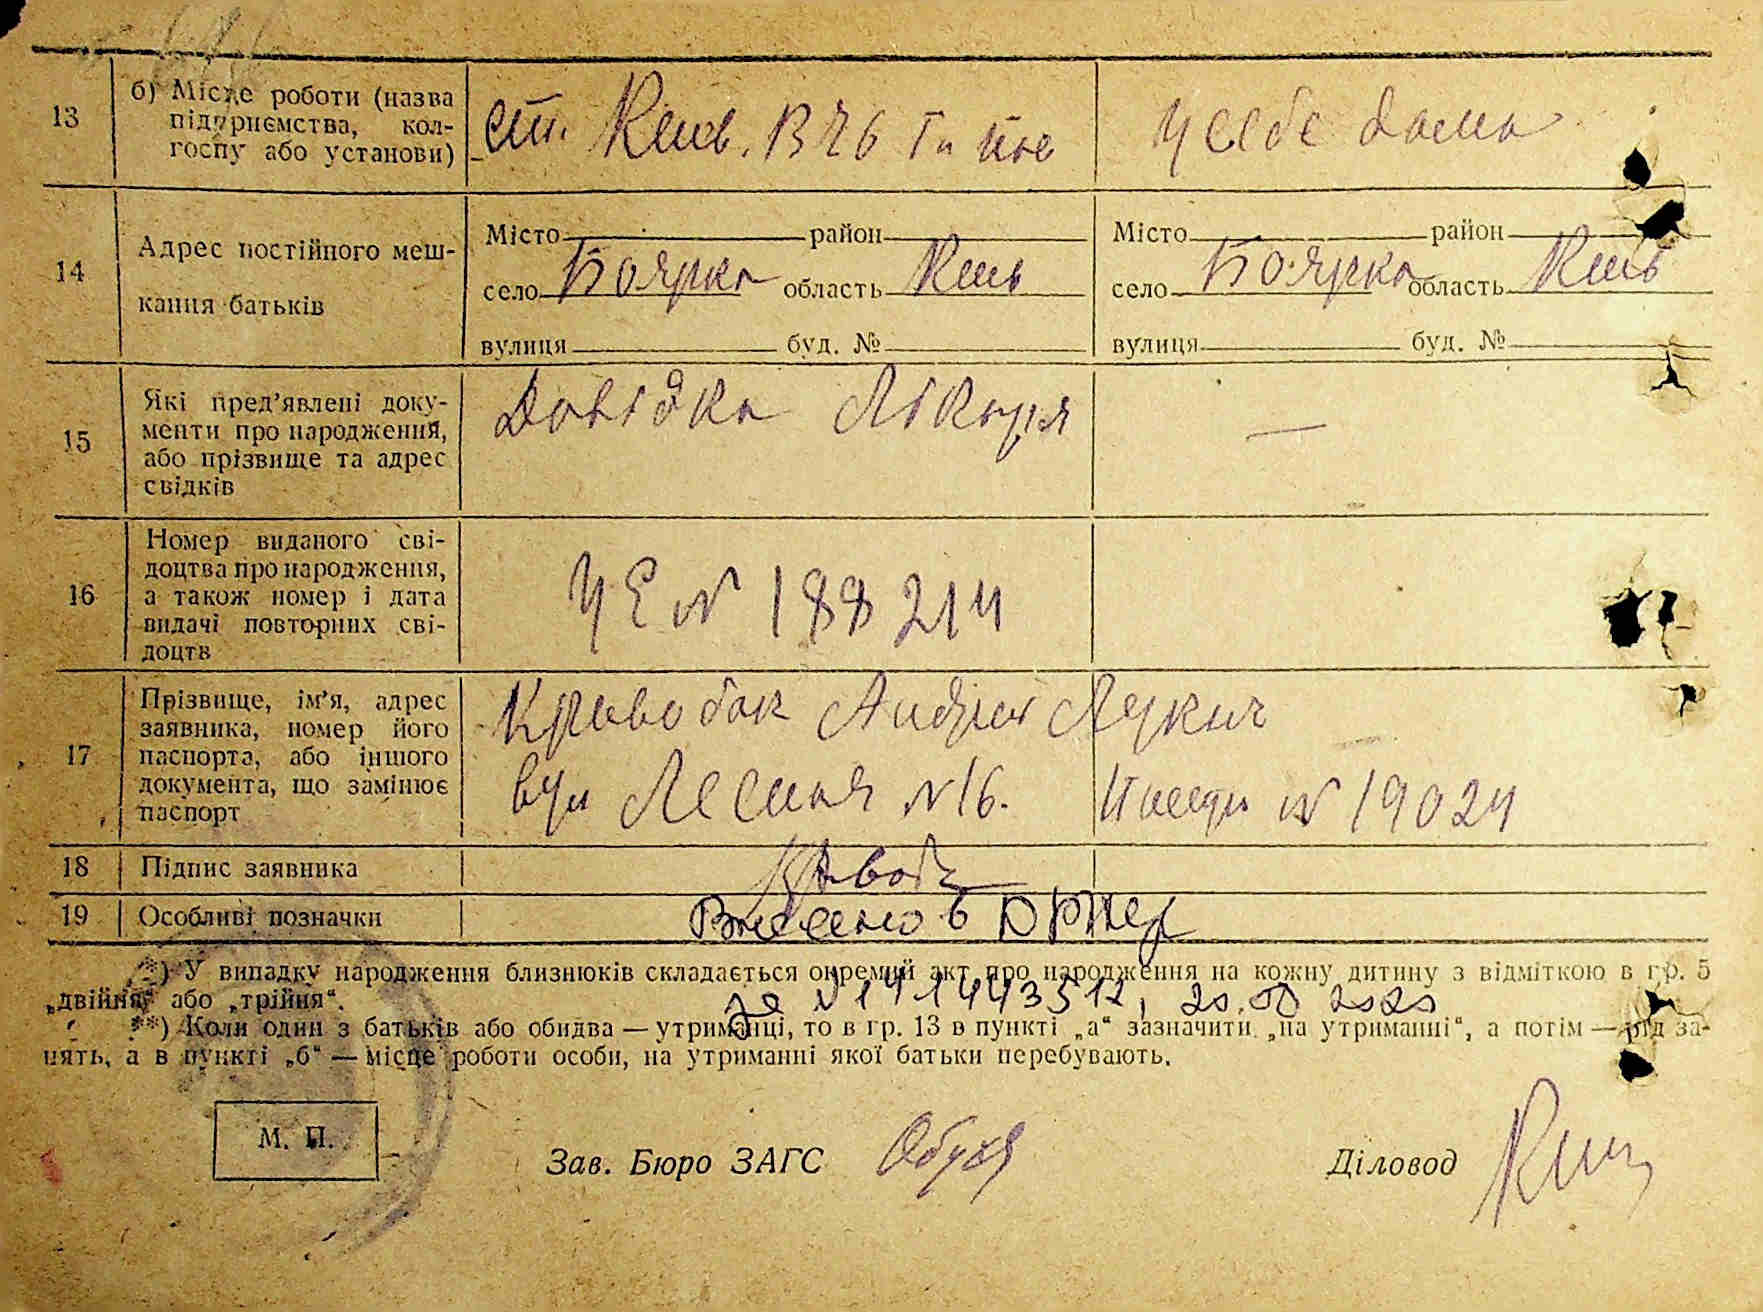 13
б) Місце роботи (назва
підприємства, кол-
госпу або установи)
ст. Киев.
у себе дома
14
Адрес постійного меш-
кання батьків
Місто район
село Боярка область Киев
вулиця буд. №
Місто район
село Боярка область Киев
вулиця буд. №
15
Які пред'явлені доку-
менти про народження,
або прізвище та адрес
свідків
Довідка Лікаря
—
16
Номер виданого сві-
доцтва про народження,
а також номер і дата
видачі повторних сві-
доцтв
УЕ N 188214
17
Прізвище, ім'я, адрес
заявника, номер його
паспорта, або іншого
документа, що замінює
паспорт
Кривобок Андрей Лукич
вул Лесная N 16. N 19024
18
Підпис заявника
19
Особливі позначки
Внесено в
*) У випадку народження близнюків складається окремий акт про народження на кожну дитину з відміткою в гр. 5
„двійня“ або „трійня“.
за N
**) Коли один з батьків або обидва — утриманці, то в гр. 13 в пункті „а“ зазначити „на утриманні“, а потім — рід за-
нять, а в пункті „б“ — місце роботи особи, на утриманні якої батьки перебувають.
М. П.
Зав. Бюро ЗАГС
Діловод